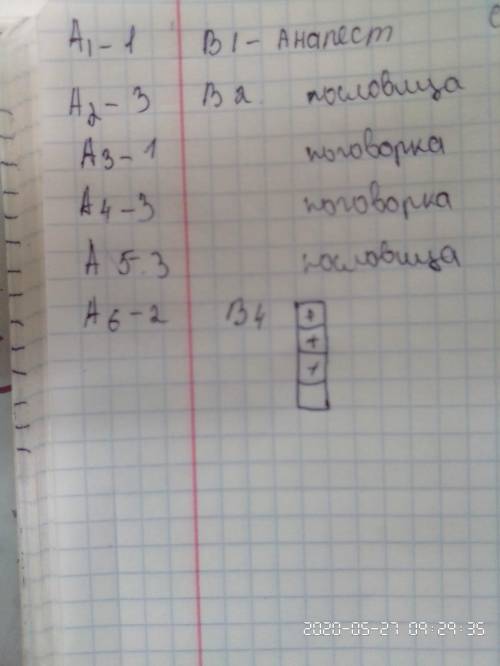 А1-1 В1-Анапест
А2-3 В2. пословица
А3-1 поговорка
А4-3 поговорка
А 5.3 пословица
А6-2 В4
+
+
+
2020-05-27 09:29:35